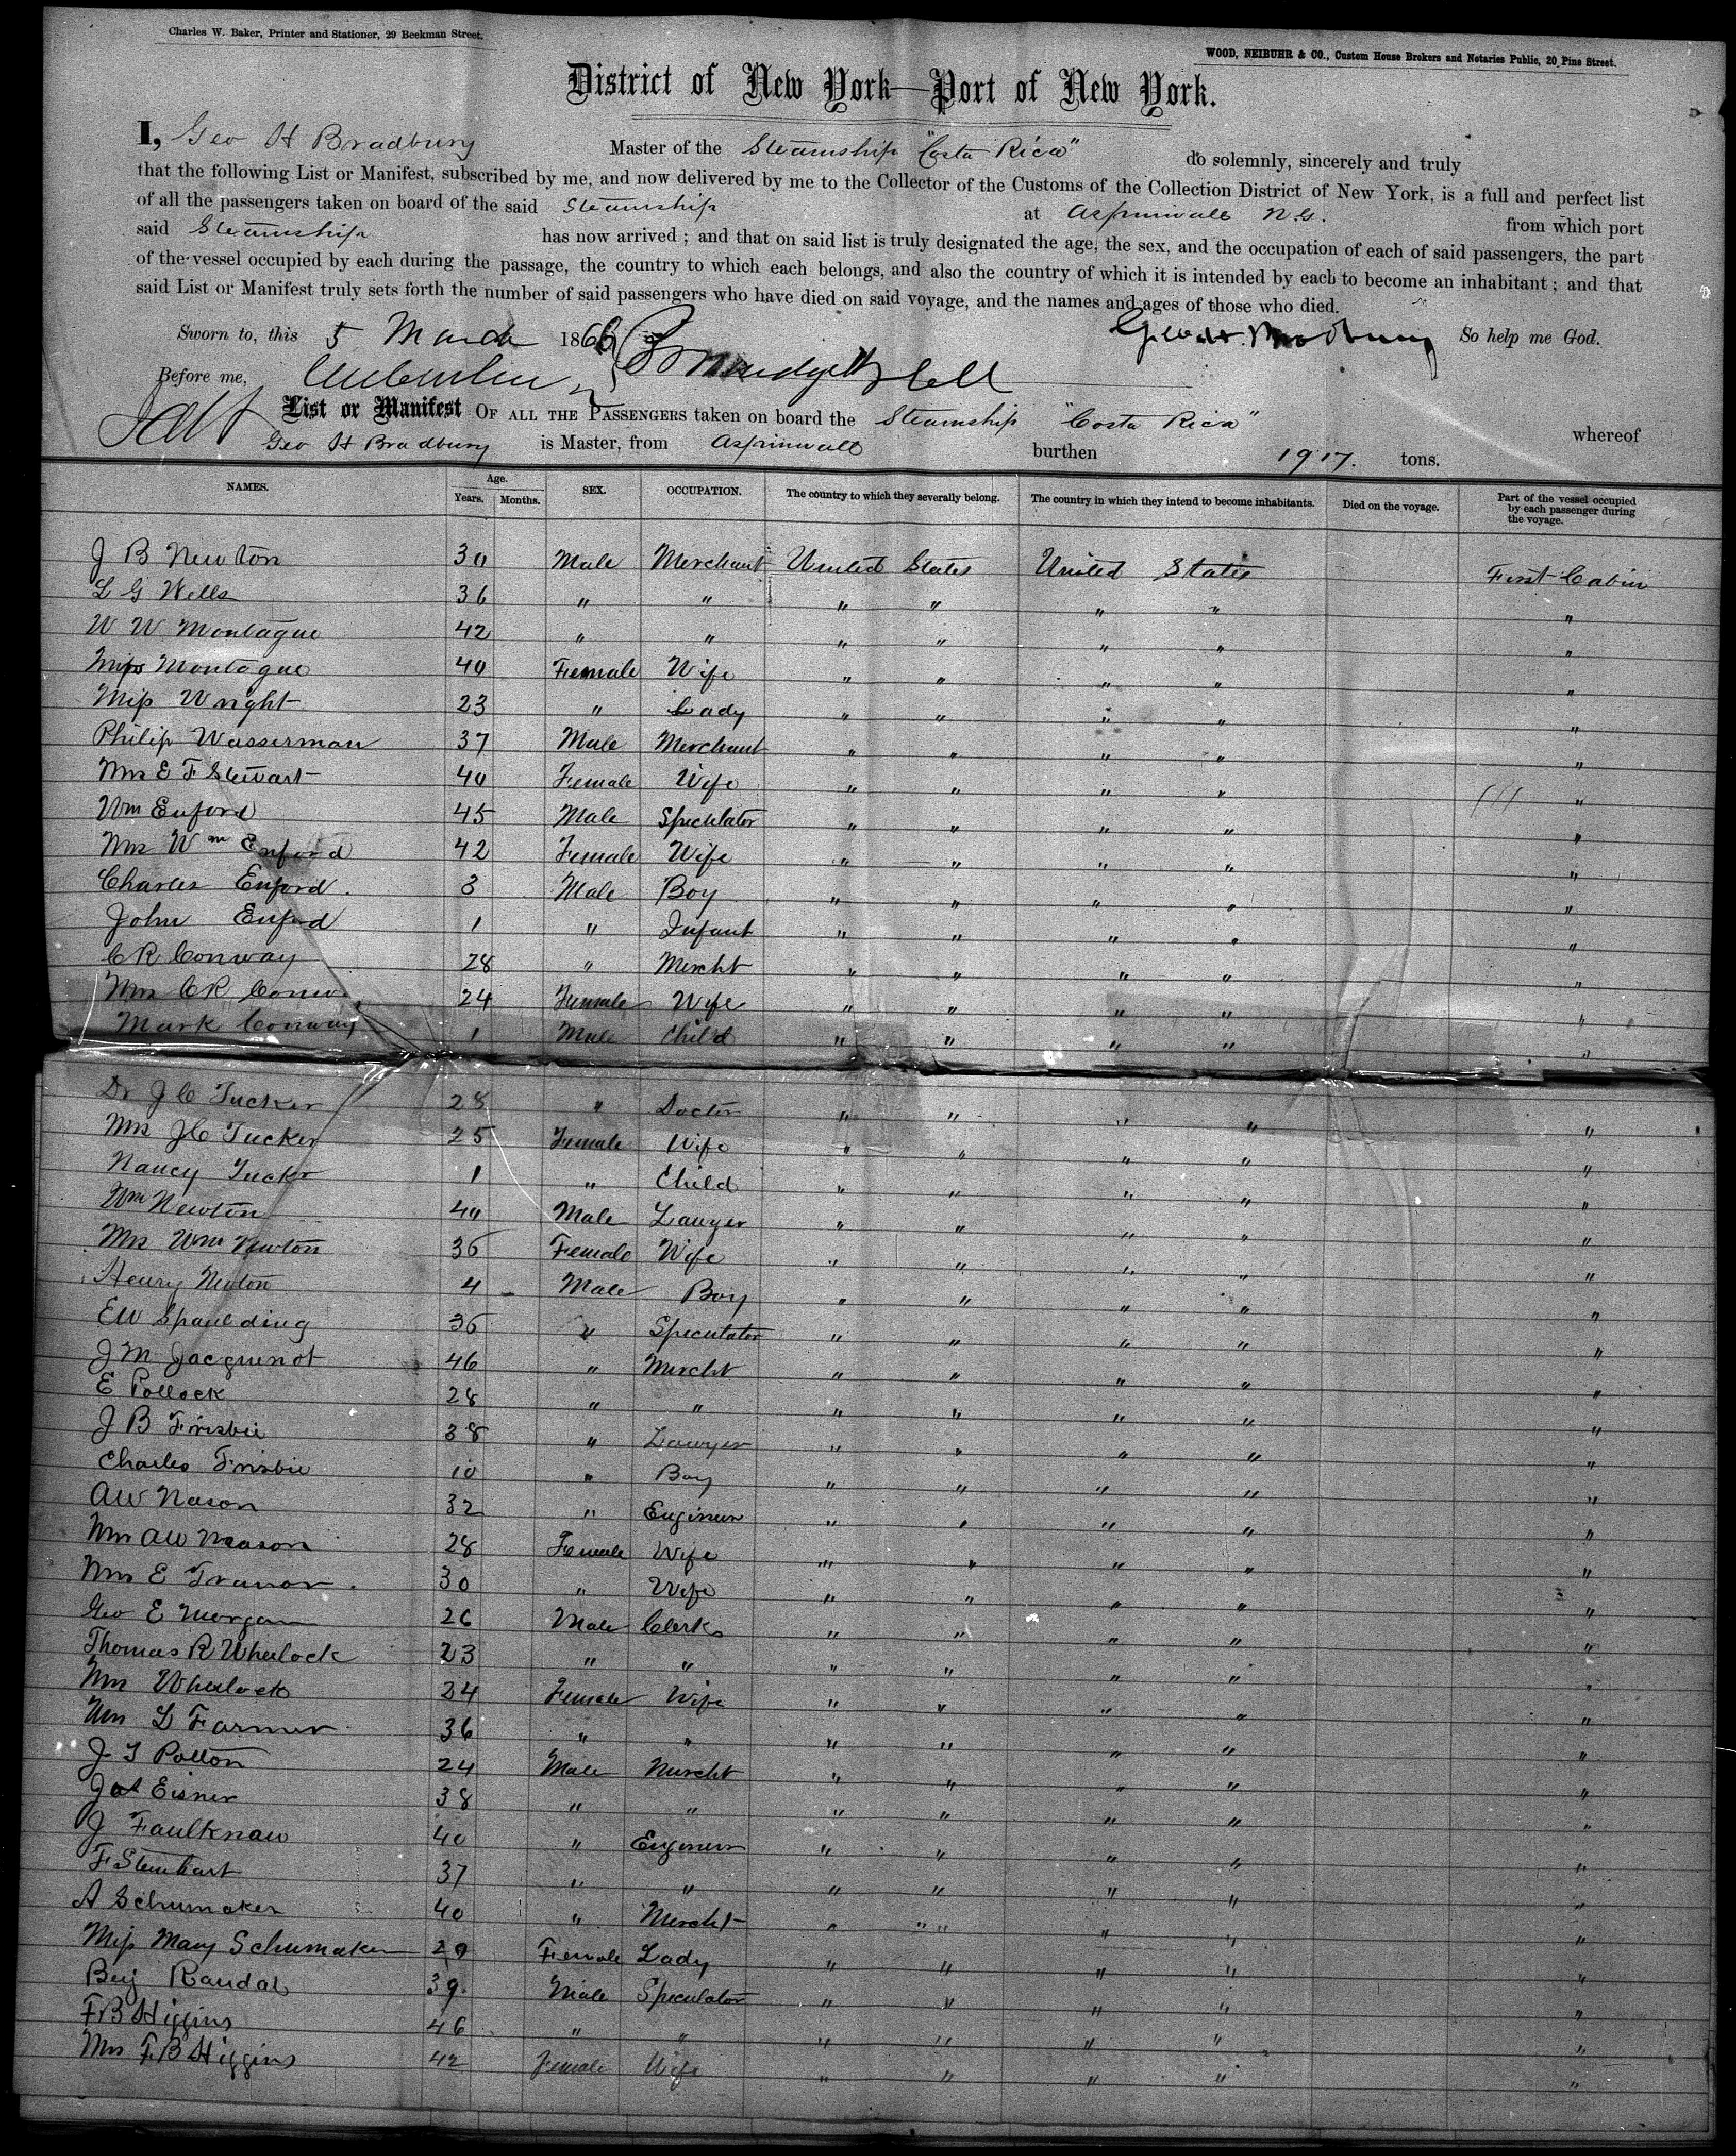 Charles W. Baker, Printer and Stationer, 29 Beekman Street.
WOOD, NEIBUHR & CO., Custom House Brokers and Notaries Public, 20 Pine Street.
District of New York—Port of New York.
I, Geo H Bradbury Master of the Steamship "Costa Rica" do solemnly, sincerely and truly
that the following List or Manifest, subscribed by me, and now delivered by me to the Collector of the Customs of the Collection District of New York, is a full and perfect list
of all the passengers taken on board of the said Steamship at Aspinwall N.G. from which port
said Steamship has now arrived ; and that on said list is truly designated the age, the sex, and the occupation of each of said passengers, the part
of the vessel occupied by each during the passage, the country to which each belongs, and also the country of which it is intended by each to become an inhabitant ; and that
said List or Manifest truly sets forth the number of said passengers who have died on said voyage, and the names and ages of those who died.
Sworn to, this 5 March 1866 Geo. H. Bradbury So help me God.
Before me,
List or Manifest OF ALL THE PASSENGERS taken on board the Steamship "Costa Rica" whereof
Geo H Bradbury is Master, from Aspinwall burthen 1917. tons.
NAMES. Age. Years. Months. SEX. OCCUPATION. The country to which they severally belong. The country in which they intend to become inhabitants. Died on the voyage. Part of the vessel occupied by each passenger during the voyage.
J B Newton 30 Male Merchant United States United States First Cabin
L G Wells 36 " " " " " " "
W W Montague 42 " " " " " " "
Mrs Montague 40 Female Wife " " " " "
Miss Wright 23 " Lady " " " " "
Philip Wasserman 37 Male Merchant " " " " "
Mrs E F Stewart 40 Female Wife " " " " "
Wm Enford 45 Male Speculator " " " " "
Mrs Wm Enford 42 Female Wife " " " " "
Charles Enford. 3 Male Boy " " " " "
John Enford 1 " Infant " " " " "
C R Conway 28 " Mercht " " " " "
Mrs C R 24 Female Wife " " " " "
Mark Conway 1 Male Child " " " " "
Dr J C Tucker 28 " Doctor " " " " "
Mrs J C Tucker 25 Female Wife " " " " "
Nancy Tucker 1 " Child " " " " "
Wm Newton 40 Male Lawyer " " " " "
Mrs Wm Newton 36 Female Wife " " " " "
Henry Newton 4 Male Boy " " " " "
E W Spaulding 36 " Speculator " " " " "
J M Jacquenot 46 " Mercht " " " " "
E Pollock 28 " " " " " " "
J B Frisbie 38 " Lawyer " " " " "
Charles Frisbie 10 " Boy " " " " "
A W Nason 32 " Engineer " " " " "
Mrs A W Nason 28 Female Wife " " " " "
Mrs E 30 " Wife " " " " "
Geo E Morgan 26 Male Clerk " " " " "
Thomas R Wheelock 23 " " " " " " "
Mrs Wheelock 24 Female Wife " " " " "
Mrs L Farmer 36 " " " " " " "
J T Patton 24 Male Mercht " " " " "
Eisner 38 " " " " " " "
J Faulknau 40 " Engineer " " " " "
F Steinhart 37 " " " " " " "
A Schumaker 40 " Mercht " " " " "
Miss Mary Schumaker 29 Female Lady " " " " "
Benj Randal 39 Male Speculator " " " " "
F B Higgins 46 " " " " " " "
Mrs F B Higgins 42 Female Wife " " " " "